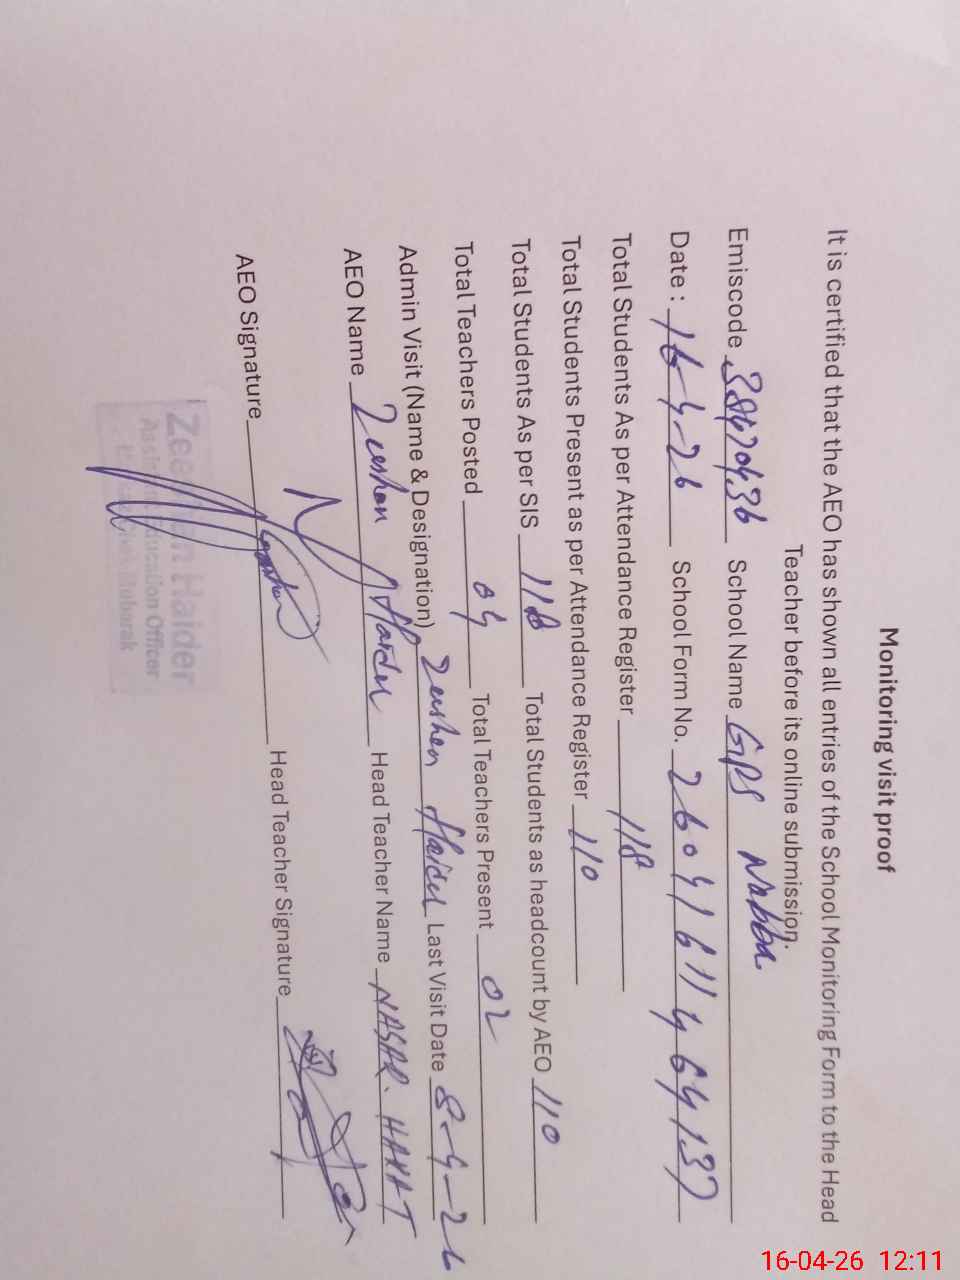 Monitoring visit proof
It is certified that the AEO has shown all entries of the School Monitoring Form to the Head
Teacher before its online submission.
Emiscode 38420436 School Name GPS Nabba
Date : 16-4-26 School Form No. 2604161146437
Total Students As per Attendance Register 118
Total Students Present as per Attendance Register 110
Total Students As per SIS 118 Total Students as headcount by AEO 110
Total Teachers Posted 04 Total Teachers Present 02
Admin Visit (Name & Designation) Zeeshan Haider Last Visit Date 8-4-26
AEO Name Zeeshan Haider Head Teacher Name NASAR. HAYAT
AEO Signature Head Teacher Signature
Zeeshan Haider
Assistant Education Officer
Mubarak
16-04-26 12:11